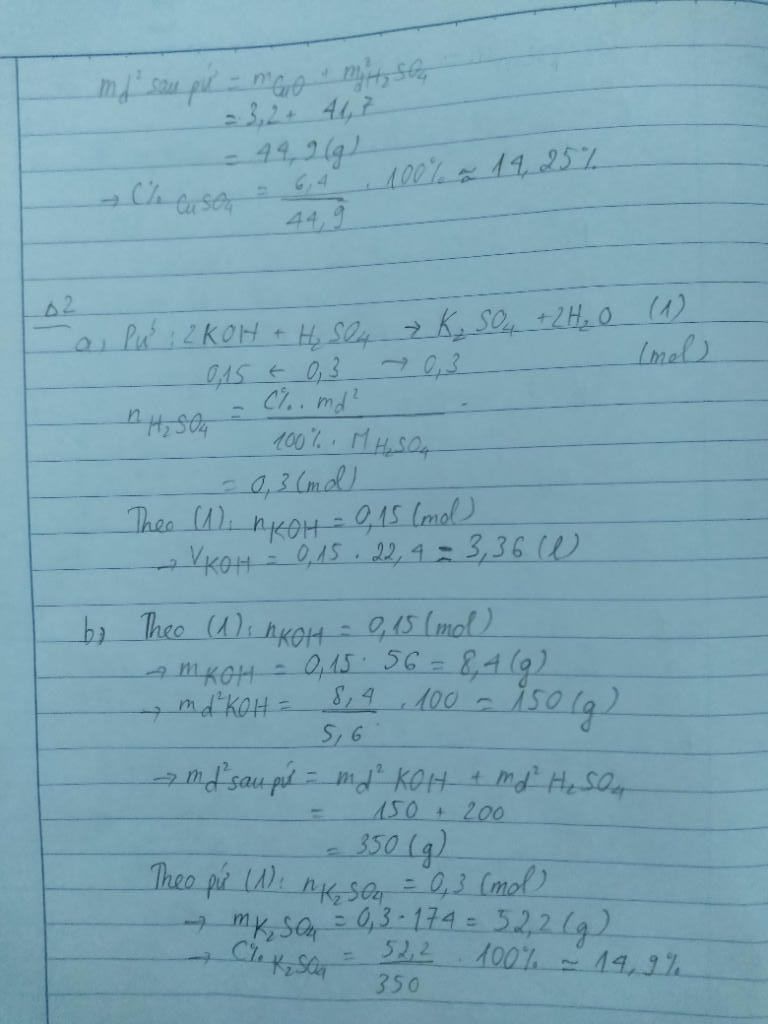 md² sau pứ = mCuO + md²H₂SO₄
= 3,2 + 41,7
= 44,9 (g)
→ C% CuSO₄ = 6,4 / 44,9 . 100% ≈ 14,25%
Δ2
a, Pứ : 2KOH + H₂SO₄ → K₂SO₄ + 2H₂O (1)
0,15 ← 0,3 → 0,3 (mol)
nH₂SO₄ = C% . md² / 100% . MH₂SO₄
= 0,3 (mol)
Theo (1): nKOH = 0,15 (mol)
→ VKOH = 0,15 . 22,4 = 3,36 (l)
b, Theo (1): nKOH = 0,15 (mol)
→ mKOH = 0,15 . 56 = 8,4 (g)
→ md²KOH = 8,4 / 5,6 . 100 = 150 (g)
→ md² sau pứ = md² KOH + md² H₂SO₄
= 150 + 200
= 350 (g)
Theo pứ (1): nK₂SO₄ = 0,3 (mol)
→ mK₂SO₄ = 0,3 . 174 = 52,2 (g)
→ C% K₂SO₄ = 52,2 / 350 . 100% ≈ 14,9%